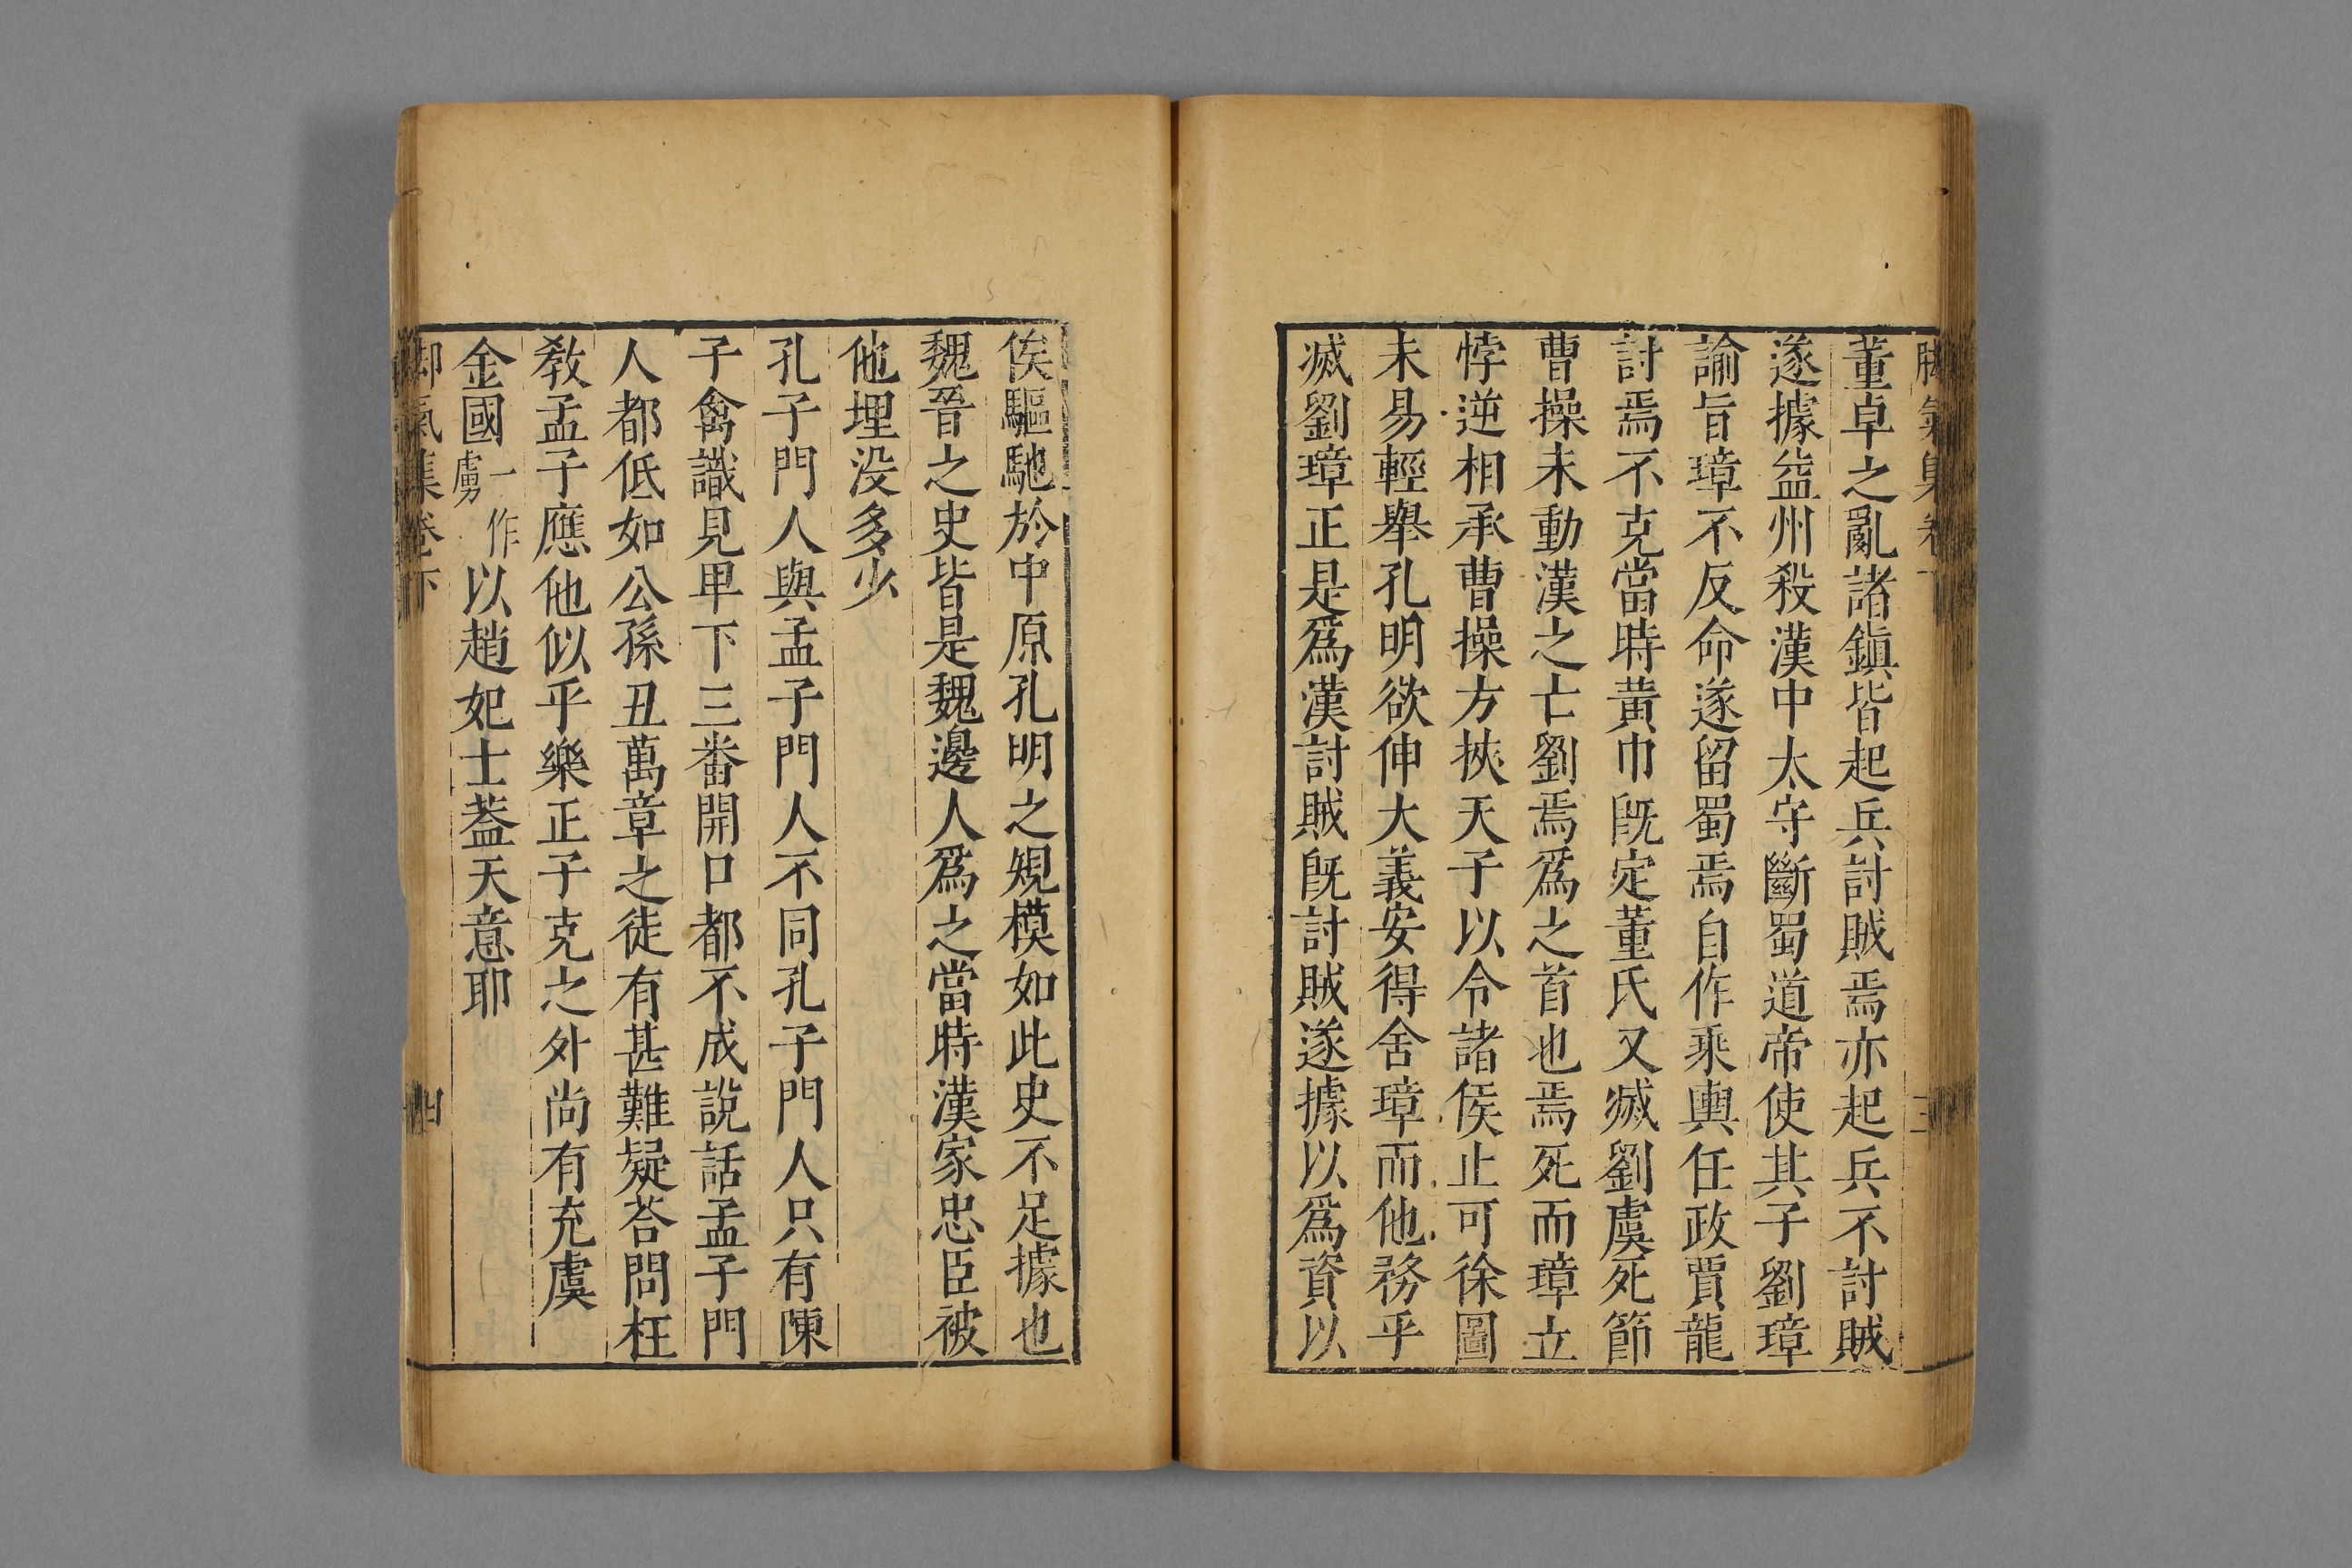 脚氣集卷下
三
董卓之亂諸鎭皆起兵討賊焉亦起兵不討賊
遂據益州殺漢中太守斷蜀道帝使其子劉璋
諭旨璋不反命遂留蜀焉自作乘輿任政賈龍
討焉不克當時黃巾旣定董氏又滅劉虞死節
曹操未動漢之亡劉焉爲之首也焉死而璋立
悖逆相承曹操方挾天子以令諸侯止可徐圖
未易輕舉孔明欲伸大義安得舍璋而他務乎
滅劉璋正是爲漢討賊旣討賊遂據以爲資以
俟驅馳於中原孔明之規模如此史不足據也
魏晉之史皆是魏邊人爲之當時漢家忠臣被
他埋没多少
孔子門人與孟子門人不同孔子門人只有陳
子禽識見甲下三番開口都不成說話孟子門
人都低如公孫丑萬章之徒有甚難疑荅問枉
敎孟子應他似乎樂正子克之外尚有充虞
金國一作虜以趙妃士葢天意耶
脚氣集卷下
四